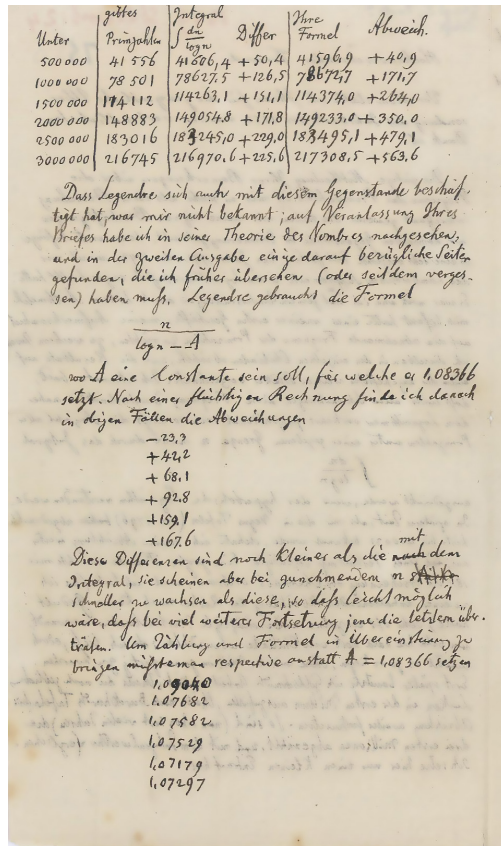 Unter gibts Primzahlen Integral ∫ dn/logn Differ Ihre Formel Abweich.
500000 41556 41606,4 +50,4 41596,9 +40,9
1000000 78501 78627,5 +126,5 78672,7 +171,7
1500000 114112 114263,1 +151,1 114374,0 +264,0
2000000 148883 149054,8 +171,8 149233,0 +350,0
2500000 183016 183245,0 +229,0 183495,1 +479,1
3000000 216745 216970,6 +225,6 217308,5 +563,6
Dass Legendre sich auch mit diesem Gegenstande beschäf-
tigt hat, war mir nicht bekannt; auf Veranlassung Ihres
Briefes habe ich in seiner Theorie des Nombres nachgesehen,
und in der zweiten Ausgabe einige darauf bezügliche Seiten
gefunden, die ich früher übersehen (oder seitdem verges-
sen) haben muss. Legendre gebraucht die Formel
n
logn – A
wo A eine Constante sein soll, für welche er 1,08366
setzt. Nach einer flüchtigen Rechnung finde ich danach
in obigen Fällen die Abweichungen
–23,3
+42,2
+68,1
+92,8
+159,1
+167,6
Diese Differenzen sind noch kleiner als die mit dem
Integral, sie scheinen aber bei zunehmendem n
schneller zu wachsen als diese, so dass leicht möglich
wäre, dass bei viel weiterer Fortsetzung jene die letztern über-
träfen. Um Zählung und Formel in Übereinstimung zu
bringen müsste man respective anstatt A = 1,08366 setzen
1,09040
1,07682
1,07582
1,07529
1,07179
1,07297